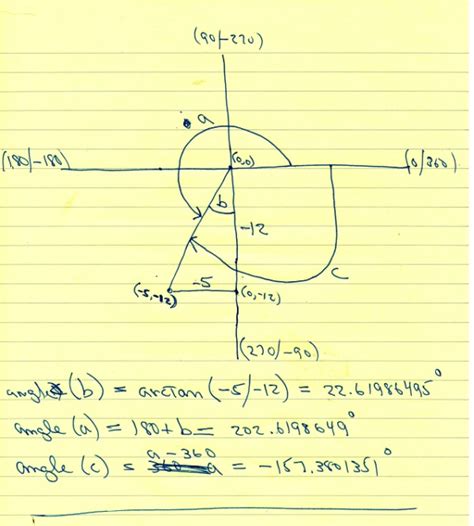 (90/-270)
a
(180/-180)
(0,0)
(0/360)
b
-12
-5
c
(-5,-12)
(0,-12)
(270/-90)
angle (b) = arctan (-5/-12) = 22.61986495°
angle (a) = 180+b = 202.6198649°
a-360
angle (c) = = -157.3801351°